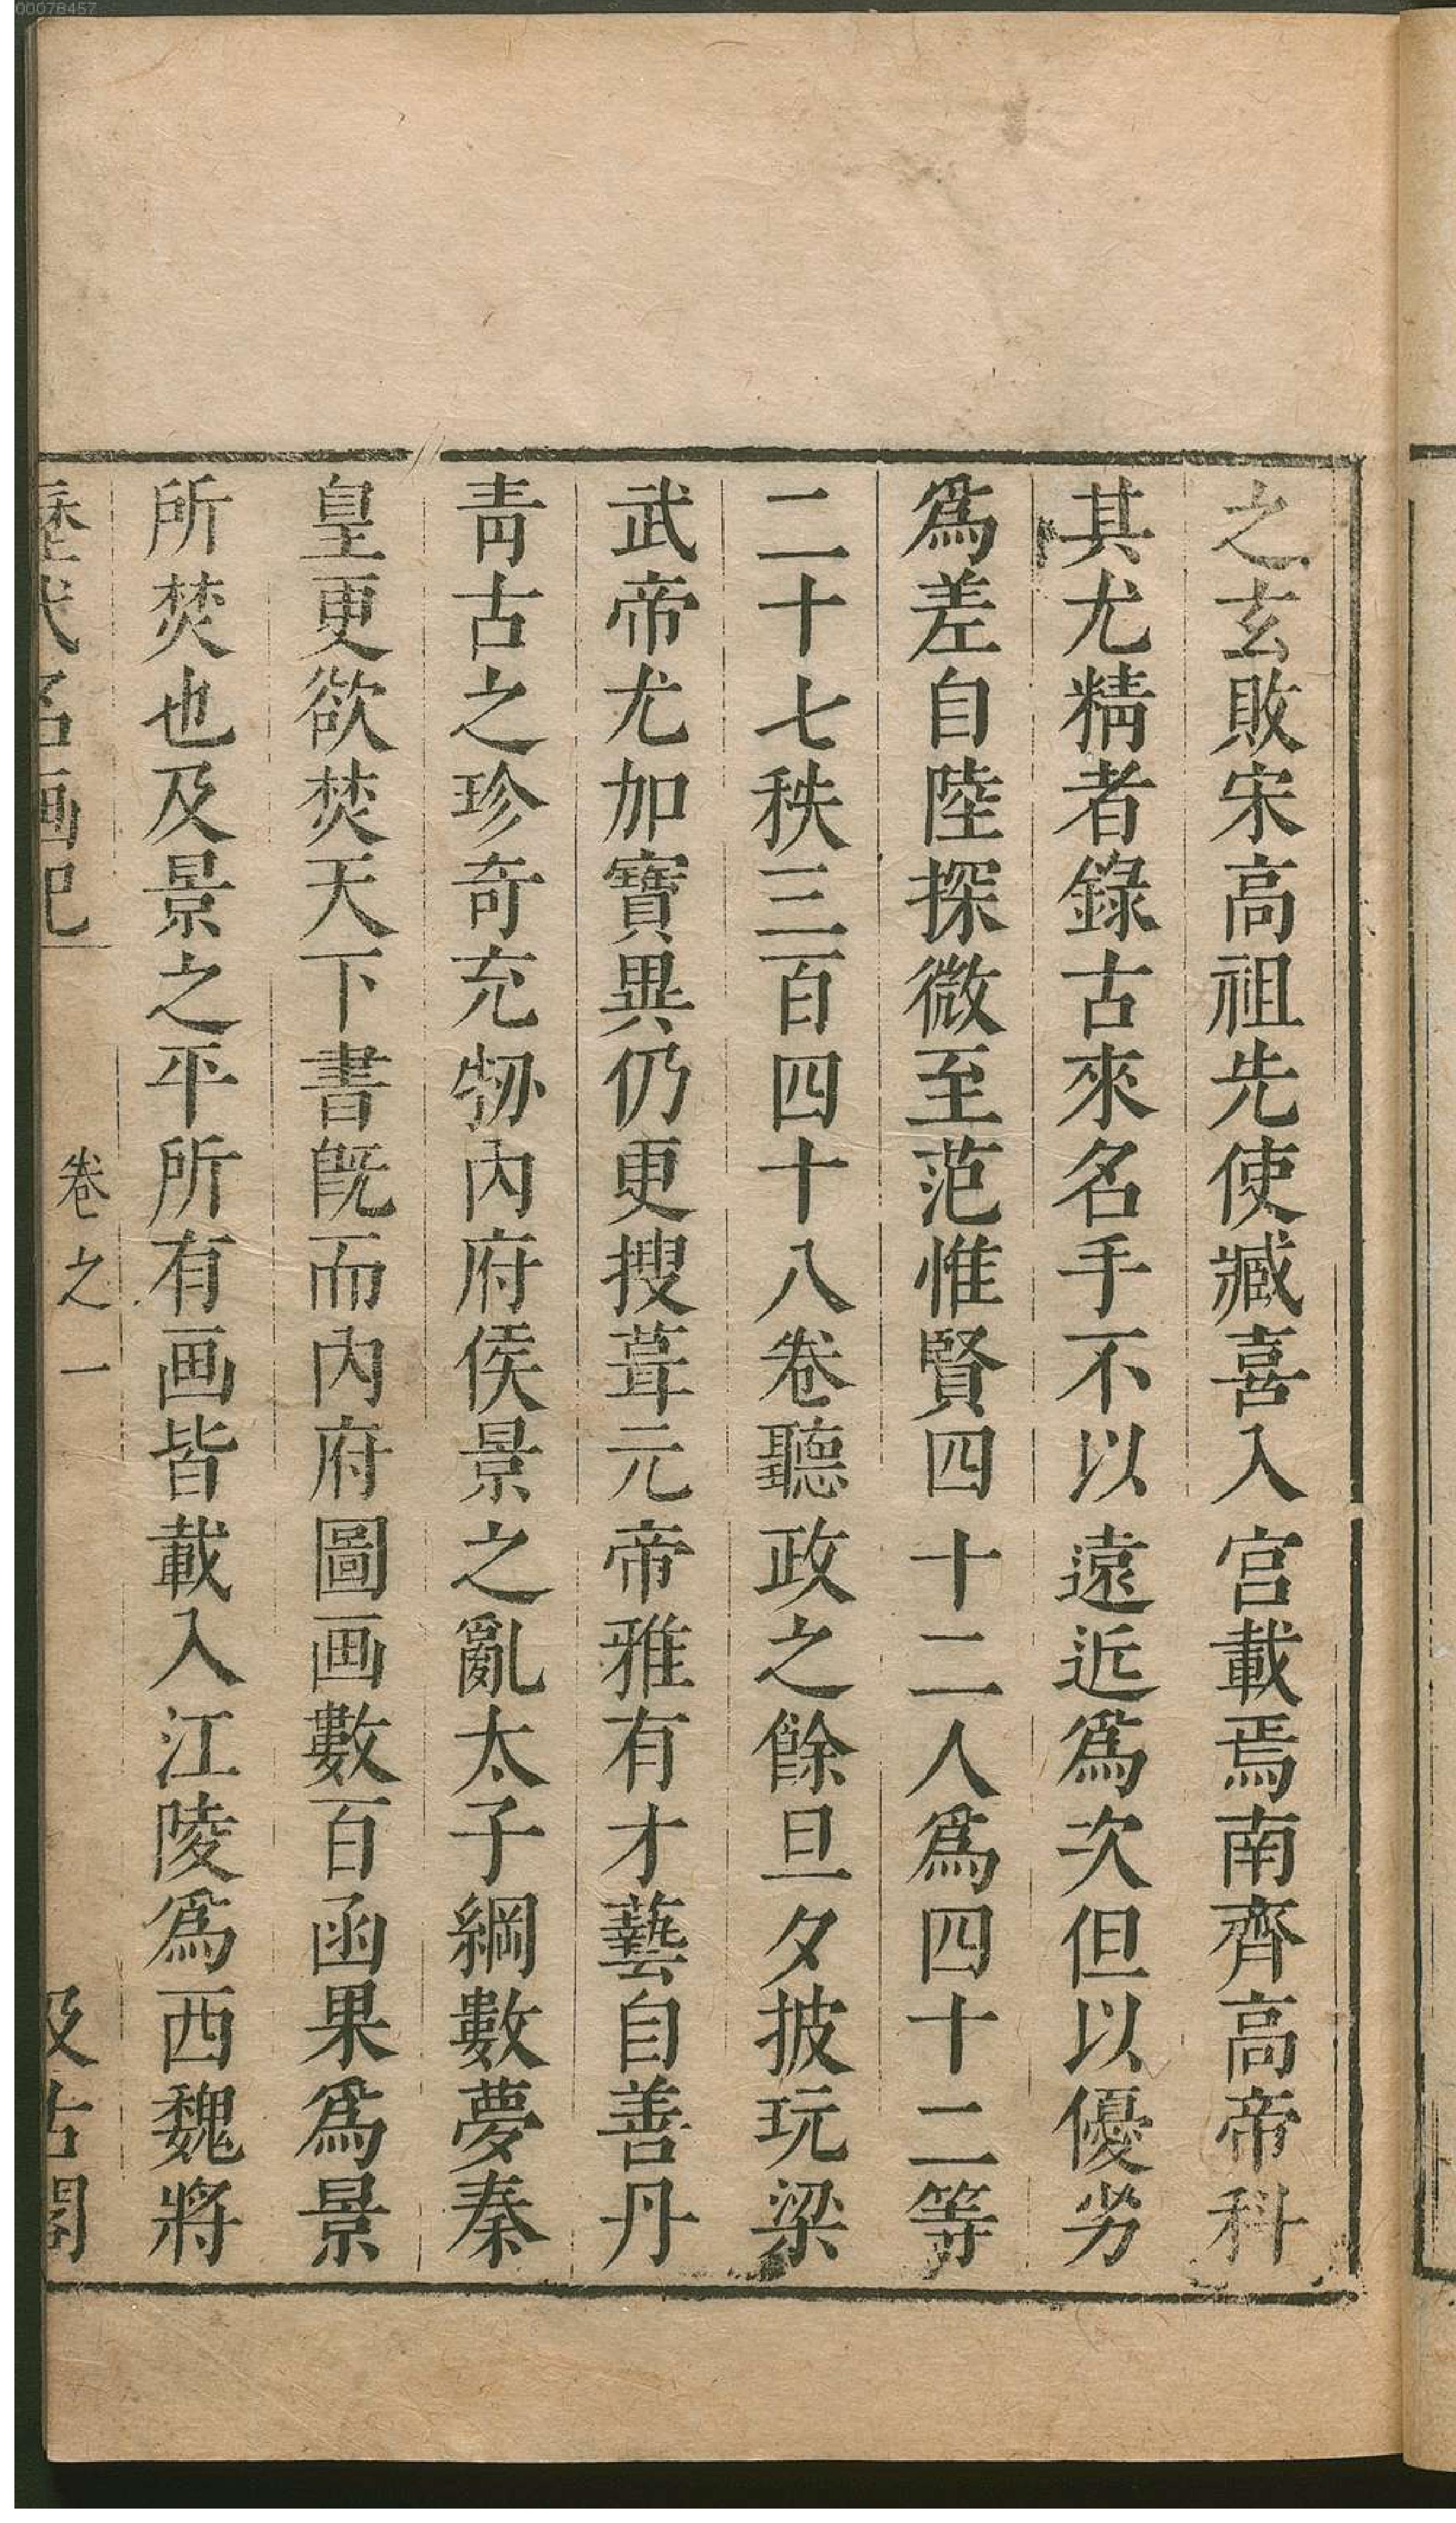 00078457
之玄敗宋高祖先使臧喜入宫載焉南齊高帝科
其尤精者錄古來名手不以遠近爲次但以優劣
爲差自陸探微至范惟賢四十二人爲四十二等
二十七秩三百四十八卷聽政之餘旦夕披玩梁
武帝尤加寶異仍更搜葺元帝雅有才藝自善丹
靑古之珍奇充牣內府侯景之亂太子綱數夢秦
皇更欲焚天下書旣而內府圖画數百函果爲景
所焚也及景之平所有画皆載入江陵爲西魏將
歷代名画記 卷之一 汲古閣